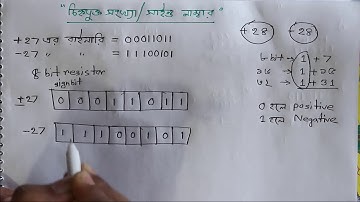 "চিহ্নযুক্ত সংখ্যা/সাইন্ড নাম্বার"
+27 এর বাইনারি = 00011011
-27 " " = 11100101
8 bit resistor
signbit
+27 0 0 0 1 1 0 1 1
-27 1 1 1 0 0 1 0 1
+28 -28
৮ বিট → 1 + 7
১৬ " → 1 + ১৫
৩২ " → 1 + 31
0 হলে positive
1 হলে Negative